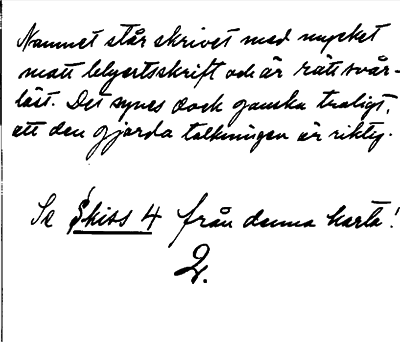 Namnet står skrivet med mycket
matt blyertsskrift och är rätt svår-
läst. Det synes dock ganska troligt,
att den gjorda tolkningen är riktig.
Se Skiss 4 från denna karta!
2.